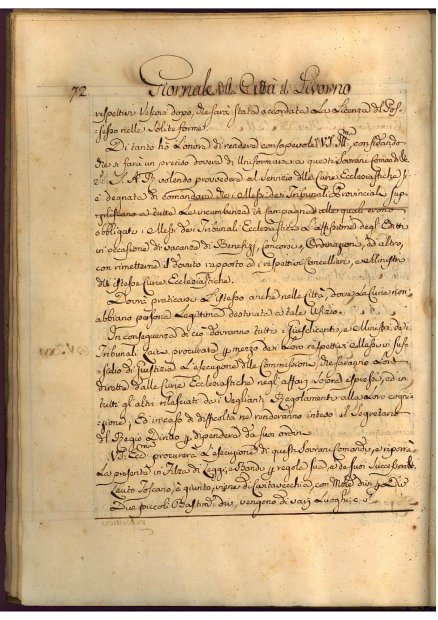 72 Giornale della Città di Livorno
respettivi Vescovi dopo, che sarà stata accordata La Licenza del Pos-
sesso nelle Solite forme.
Di tanto hò L'onore di rendere consapevole VS. Ill.ma
che si farà un preciso dovere di Uniformarsi a questi Sovrani Comandi
S. A. R. volendo provvedere al Servizio delle Curie Ecclesiastiche si
è degnata di comandare che i Messi dei Tribunali Provinciali sup-
pliscano a tutte Le incumbenze di Campagna alle quali erano
obbligati i Messi dei Tribunali Ecclesiastici L'affissione degli Editti
in occasione di vacanza di Benefizj, Concorsi, Ordinazione, ed altro,
con rimetterne il dovuto rapporto ai respettivi Cancellieri, e Ministri
delle istesse Curie Ecclesiastiche.
Dovrà praticarsi L'istesso anche nelle Città, dove Le Curie non
abbiano persona Legittima destinata a tale Ufizio.
In conseguenza di ciò dovranno tutti i Giusdicenti, e Ministri dei
Tribunali Laici, procurare per mezzo dei Loro respettivi Messi in sus-
sidio di Giustizia L'esecuzione delle Commissioni, che saranno Loro
dirette dalle Curie Ecclesiastiche negli affari sopra espressi, ed in
tutti gli altri rilasciati dai Veglianti Regolamenti alla Loro cogni-
zione, ed in caso di difficoltà ne renderanno inteso il Segretario
del Regio Diritto per dipendere da suoi ordini.
procurerà L'esecuzione di questi Sovrani Comandi, e riporrà
La presente in Filza di Leggi, e Bandi per regola sua, e de suoi Successori
Leuto Toscano, è giunto, viene di Civitavecchia con
Due piccoli Bastim. div. vengono di varj Luoghi